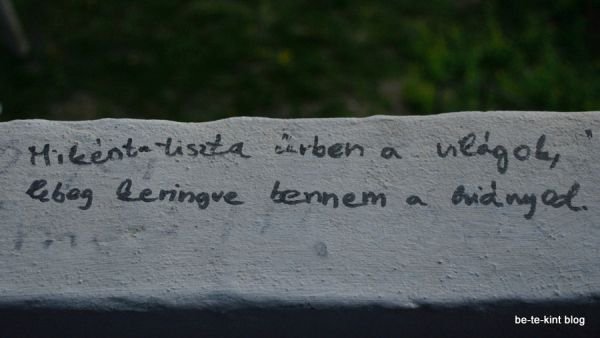 Miként a tiszta űrben a világok,
lebeg keringve bennem a hiányod.
be-te-kint blog